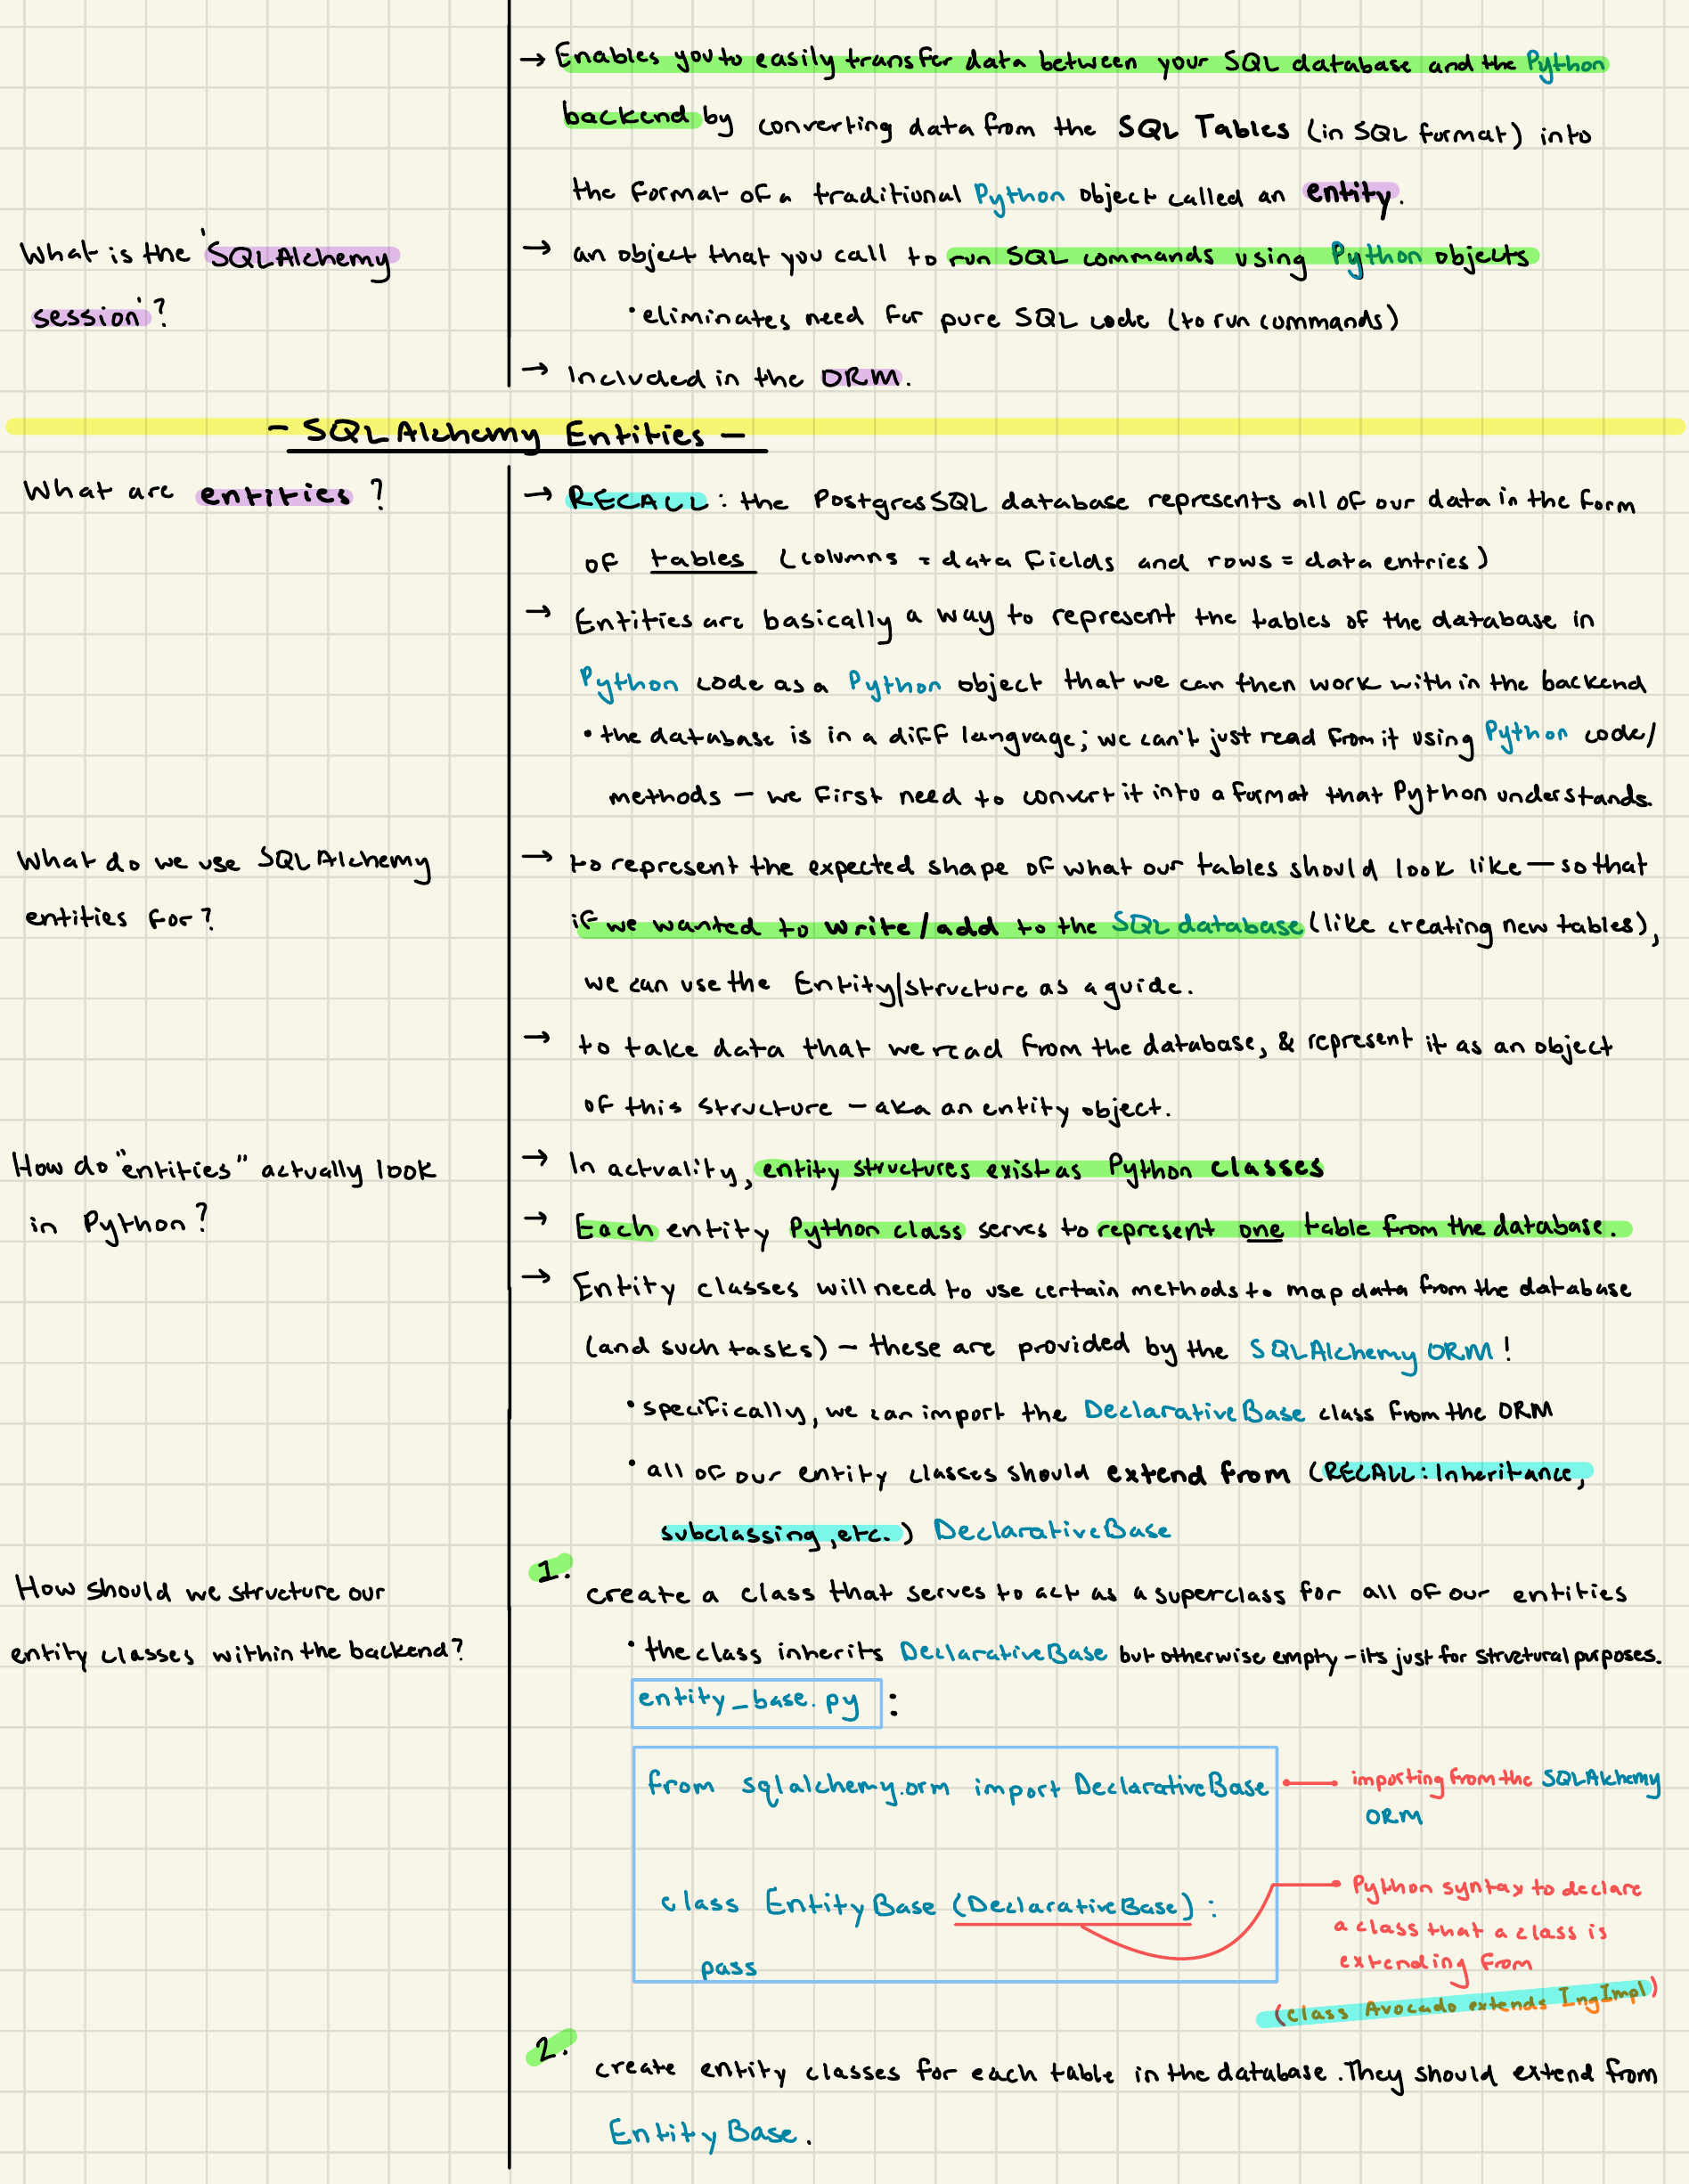 → Enables you to easily transfer data between your SQL database and the Python
backend by converting data from the SQL Tables (in SQL format) into
the format of a traditional Python object called an entity.
What is the 'SQLAlchemy
session'?
→ an object that you call to run SQL commands using Python objects
• eliminates need for pure SQL code (to run commands)
→ Included in the ORM.
- SQLAlchemy Entities -
What are entities?
→ RECALL: the PostgresSQL database represents all of our data in the form
of tables (columns = data fields and rows = data entries)
→ Entities are basically a way to represent the tables of the database in
Python code as a Python object that we can then work with in the backend
• the database is in a diff language; we can't just read from it using Python code/
methods — we first need to convert it into a format that Python understands.
What do we use SQLAlchemy
entities for?
→ to represent the expected shape of what our tables should look like — so that
if we wanted to write/add to the SQL database (like creating new tables),
we can use the Entity/structure as a guide.
→ to take data that we read from the database, & represent it as an object
of this structure — aka an entity object.
How do "entities" actually look
in Python?
→ In actuality, entity structures exist as Python classes
→ Each entity Python class serves to represent one table from the database.
→ Entity classes will need to use certain methods to map data from the database
(and such tasks) — these are provided by the SQLAlchemy ORM!
• specifically, we can import the DeclarativeBase class from the ORM
• all of our entity classes should extend from (RECALL: Inheritance,
subclassing, etc.) DeclarativeBase
How should we structure our
entity classes within the backend?
1. create a class that serves to act as a superclass for all of our entities
• the class inherits DeclarativeBase but otherwise empty - its just for structural purposes.
entity_base.py :
from sqlalchemy.orm import DeclarativeBase
importing from the SQLAlchemy
ORM
class EntityBase (DeclarativeBase) :
pass
Python syntax to declare
a class that a class is
extending from
(class Avocado extends IngImpl)
2. create entity classes for each table in the database. They should extend from
EntityBase.